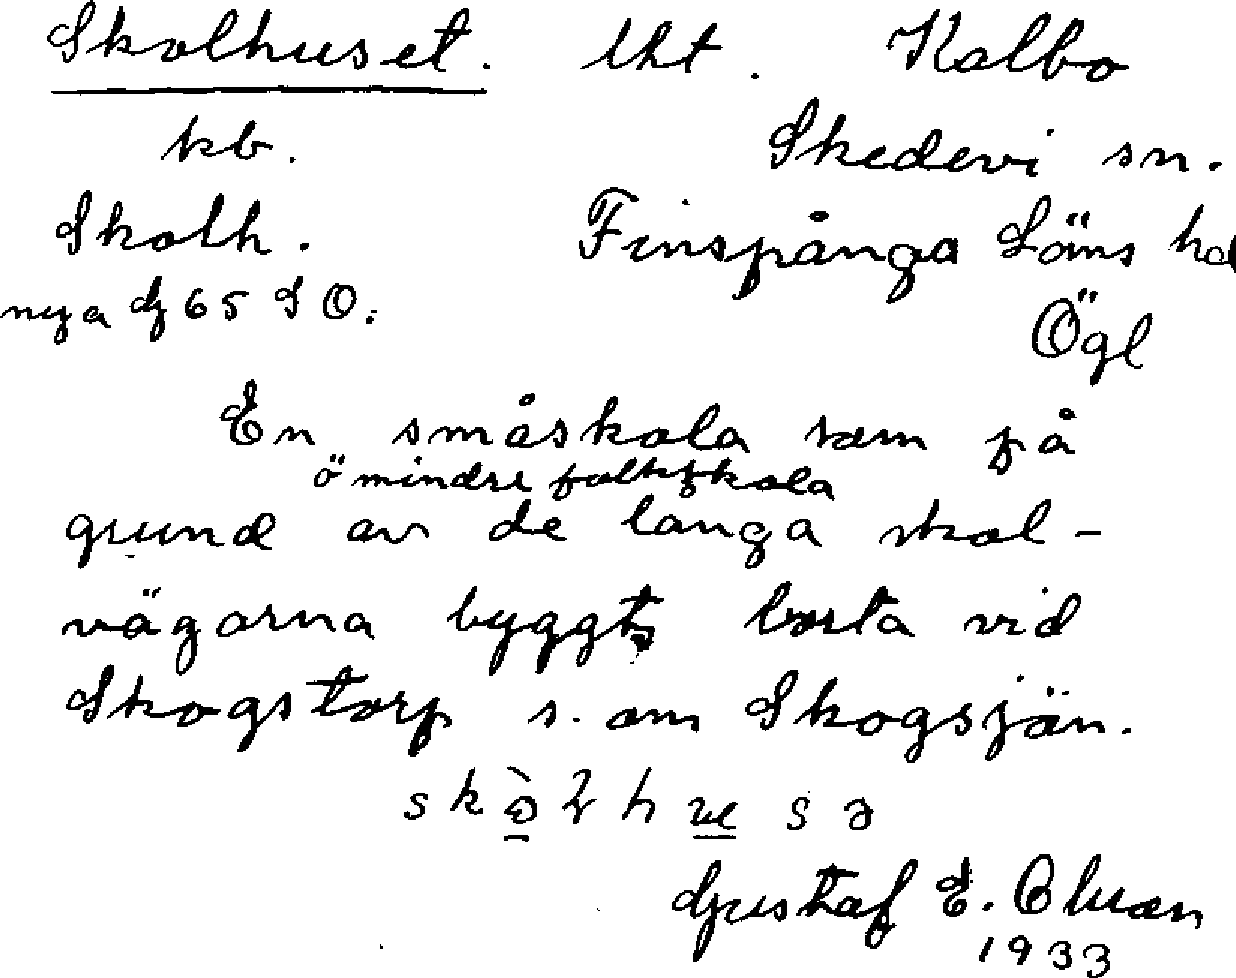 Skolhuset. lht. Kalbo
kb. Skedevi sn.
Skolh. Finspånga Läns hd
nya 65 S O. Ögl
En småskola som på
o mindre folkskola
grund av de långa skol-
vägarna byggts borta vid
Skogstorp s. om Skogsjön.
Gustaf E. Olson
1933